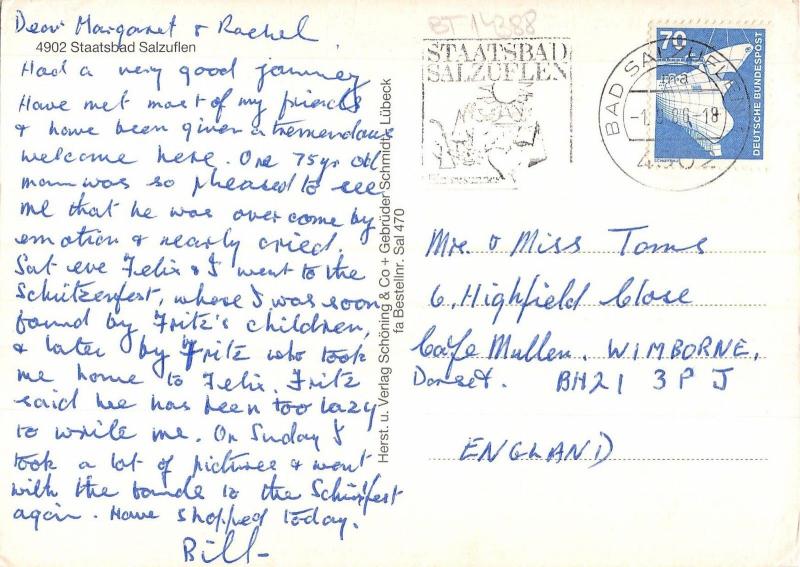 Dear Margaret & Rachel,
4902 Staatsbad Salzuflen
Had a very good journey
Have met most of my friends
& have been given a tremendous
welcome here. One 75 yr old
man was so pleased to see
me that he was over come by
emotion & nearly cried.
Sat eve Felix & I went to the
Schützenfest, where I was soon
found by Fritz's children,
& later by Fritz who took
me home to Felix. Fritz
said he has been too lazy
to write me. On Sunday I
took a lot of pictures & went
with the bande to the Schützfest
again. Have shopped today.
Bill
Herst. u. Verlag Schöning & Co + Gebrüder Schmidt, Lübeck
fa Bestellnr. Sal 470
BT 14388
STAATSBAD
SALZUFLEN
BAD SALZUFLEN
ma
86-18
4902
70
DEUTSCHE BUNDESPOST
Mrs & Miss Toms
6, Highfield Close
Corfe Mullen. WIMBORNE,
Dorset. BH21 3PJ
ENGLAND